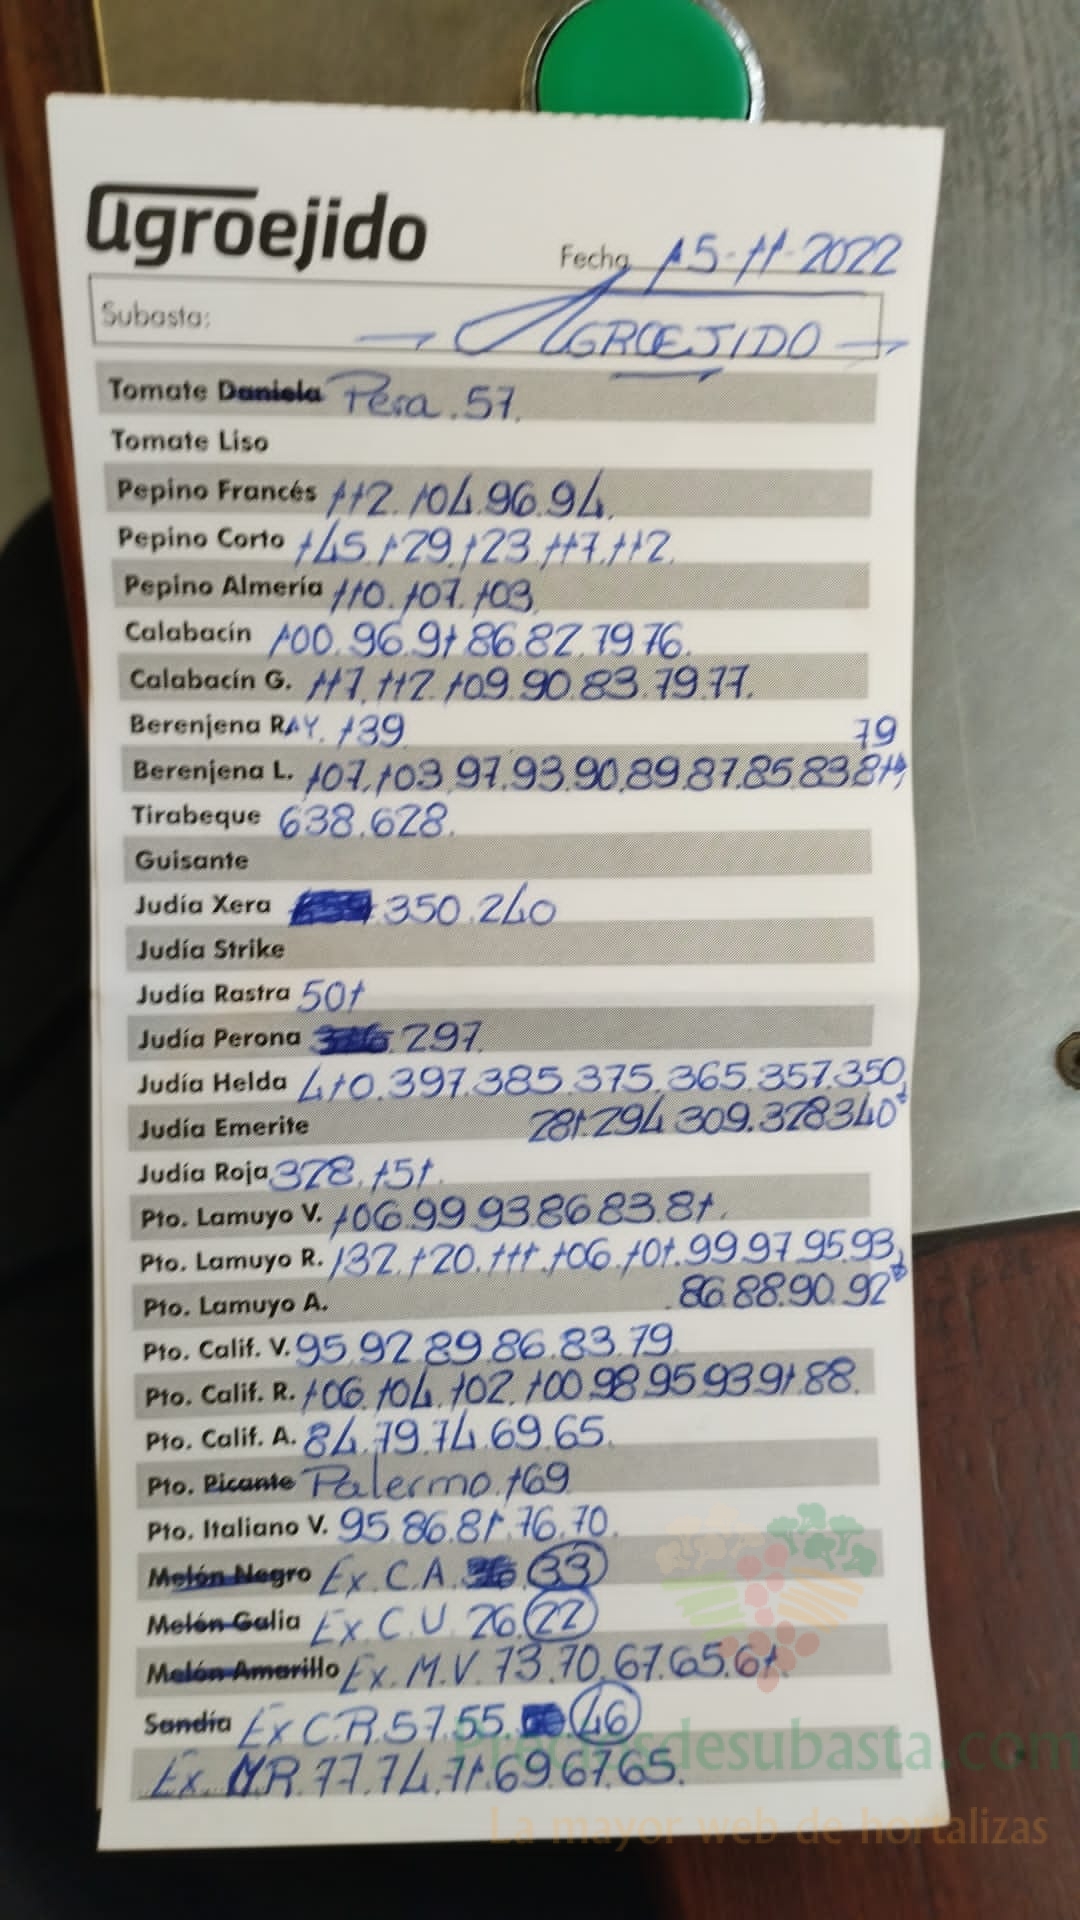 agroejido
Fecha 15-11-2022
Subasta: AGROEJIDO
Tomate Daniela Pera.57.
Tomate Liso
Pepino Francés 112.104.96.94.
Pepino Corto 145.129.123.117.112.
Pepino Almería 110.107.103.
Calabacín 100.96.91.86.82.79.76.
Calabacín G. 117.112.109.90.83.79.77.
Berenjena RAY. 139 79
Berenjena L. 107.103.97.93.90.89.87.85.83.81
Tirabeque 638.628.
Guisante
Judía Xera 350.240
Judía Strike
Judía Rastra 501
Judía Perona 297.
Judía Helda 410.397.385.375.365.357.350
Judía Emerite 281.294.309.328.340
Judía Roja 328.151.
Pto. Lamuyo V. 106.99.93.86.83.81.
Pto. Lamuyo R. 132.120.111.106.101.99.97.95.93
Pto. Lamuyo A. 86.88.90.92
Pto. Calif. V. 95.92.89.86.83.79.
Pto. Calif. R. 106.104.102.100.98.95.93.91.88.
Pto. Calif. A. 84.79.74.69.65.
Pto. Picante Palermo.169
Pto. Italiano V. 95.86.81.76.70.
Melón Negro Ex.C.A. 33
Melón Galia Ex.C.V. 26.22
Melón Amarillo Ex.M.V.73.70.67.65.61.
Sandía Ex C.R.57.55. 46
Ex. M.R.77.74.71.69.67.65.
desubasta.com
La mayor web de hortalizas